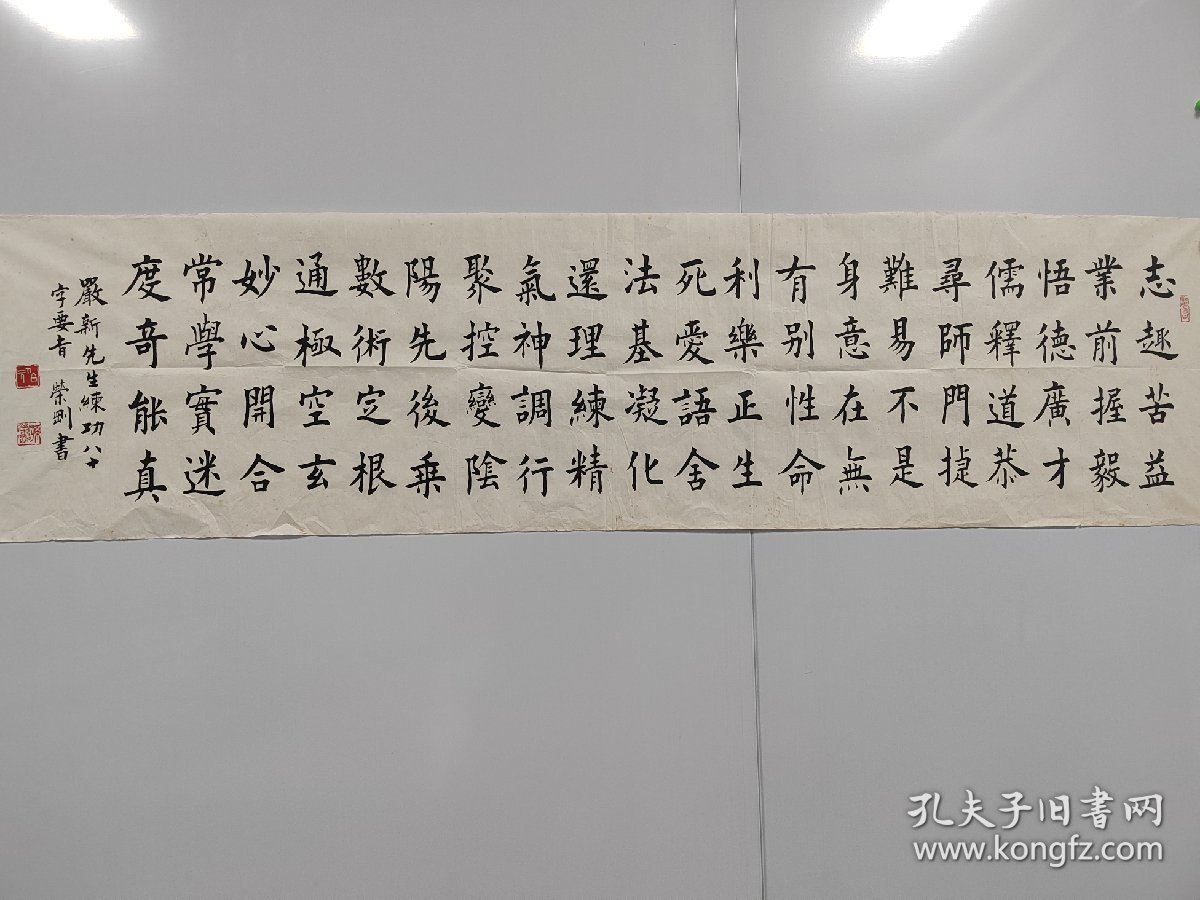 志趣苦益
業前握毅
悟德廣才
儒釋道恭
尋師門捷
難易不是
身意在無
有别性命
利樂正生
死愛語舍
法基凝化
還理練精
氣神調行
聚控變陰
陽先後乗
數術定根
通極空玄
妙心開合
常學實迷
度奇能真
嚴新先生練功八十
字要旨 榮剛書
孔夫子旧書网
www.kongfz.com